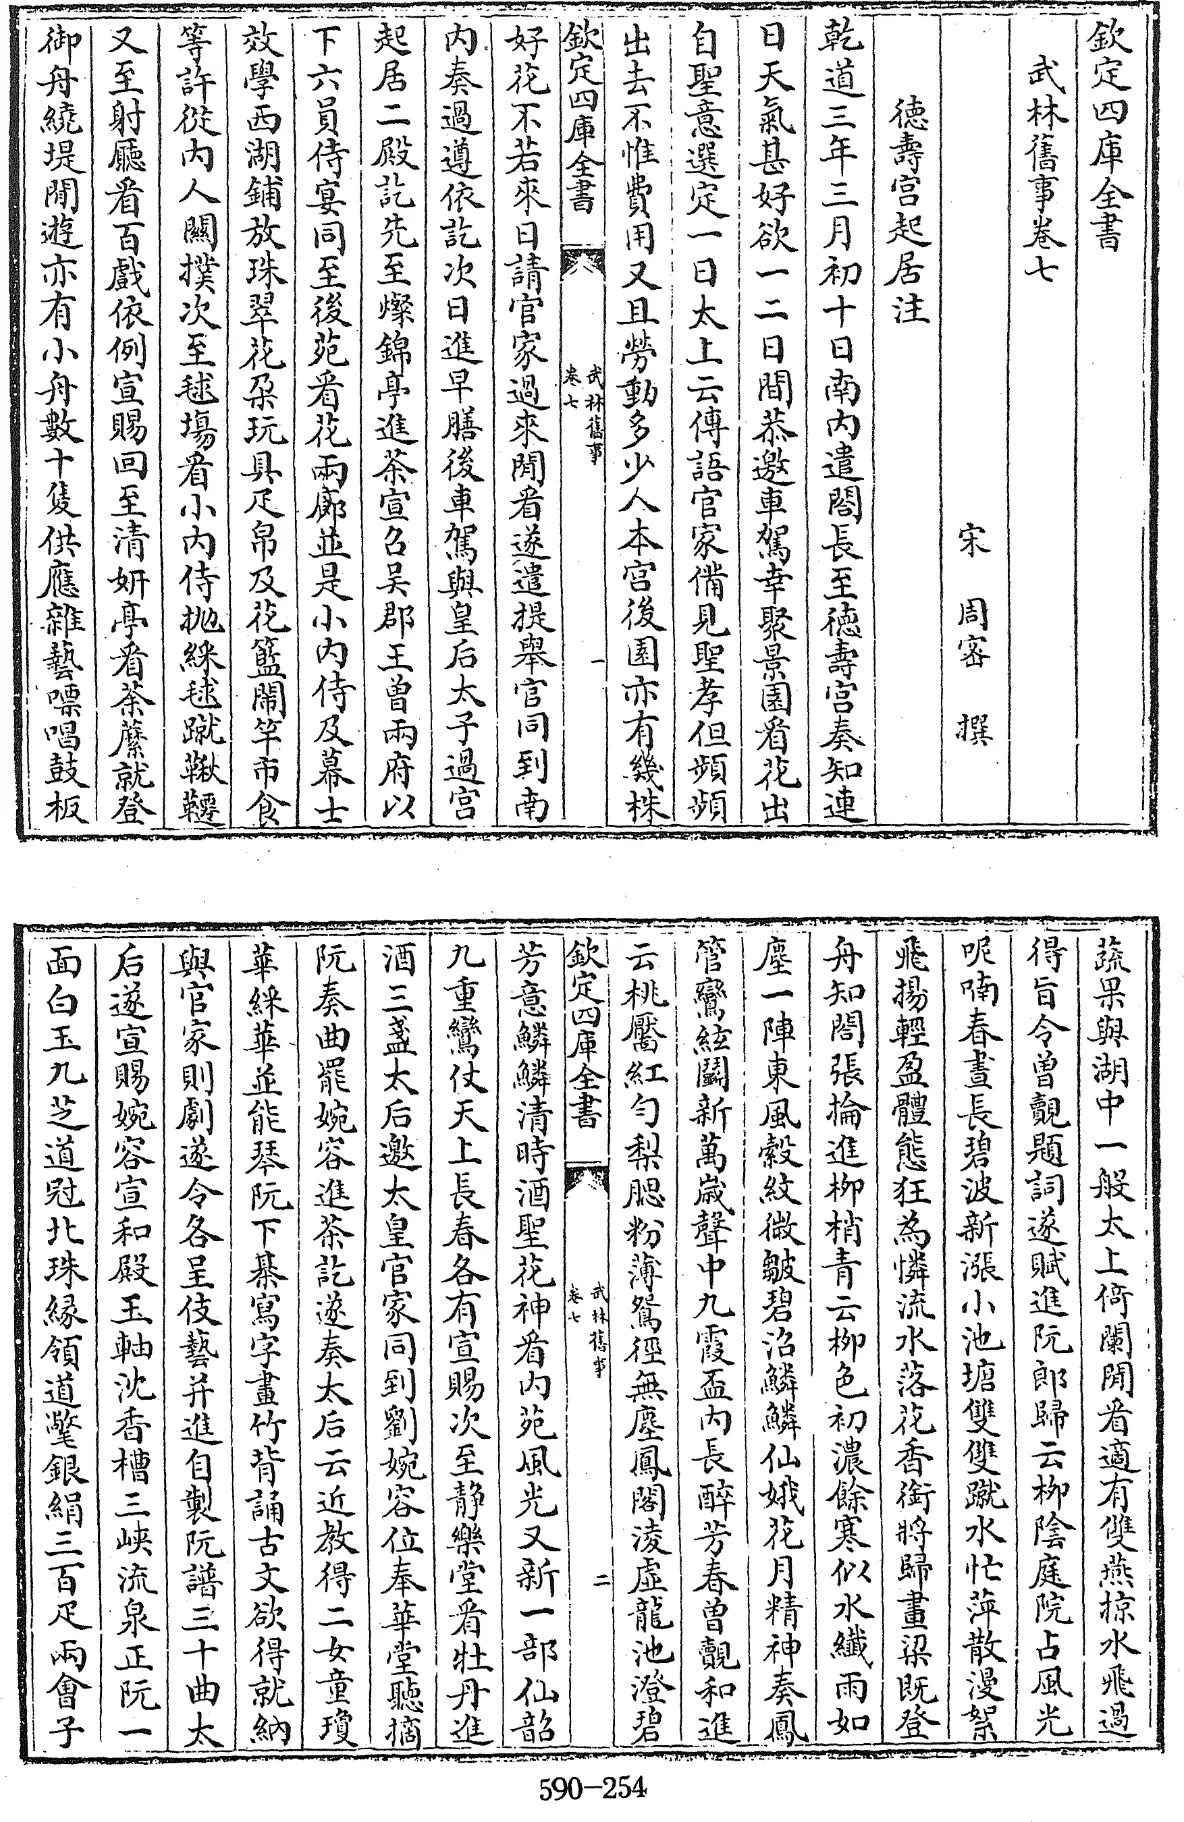 欽定四庫全書
武林舊事卷七
宋 周密 撰
德壽宮起居注
乾道三年三月初十日南內遣閤長至德壽宮奏知連
日天氣甚好欲一二日間恭邀車駕幸聚景園看花出
自聖意選定一日太上云傳語官家備見聖孝但頻頻
出去不惟費用又且勞動多少人本宮後園亦有幾株
欽定四庫全書
武林舊事
卷七
一
好花不若來日請官家過來閒看遂遣提舉官同到南
內奏過遵依訖次日進早膳後車駕與皇后太子過宮
起居二殿訖先至燦錦亭進茶宣召吳郡王曾兩府以
下六員侍宴同至後苑看花兩廊並是小內侍及幕士
效學西湖鋪放珠翠花朶玩具疋帛及花籃鬧竿市食
等許從內人關撲次至毬塲看小內侍抛綵毬蹴鞦韆
又至射廳看百戲依例宣賜回至清妍亭看茶䕷就登
御舟繞堤閒遊亦有小舟數十隻供應雜藝嘌唱鼓板
蔬果與湖中一般太上倚闌閒看適有雙燕掠水飛過
得旨令曾覿題詞遂賦進阮郎歸云柳陰庭院占風光
呢喃春晝長碧波新漲小池塘雙雙蹴水忙萍散漫絮
飛揚輕盈體態狂為憐流水落花香銜將歸畫梁既登
舟知閤張掄進柳梢青云柳色初濃餘寒似水纖雨如
塵一陣東風縠紋微皺碧沼鱗鱗仙娥花月精神奏鳳
管鸞絃鬬新萬歲聲中九霞盃內長醉芳春曾覿和進
云桃靨紅勻梨腮粉薄鴛徑無塵鳳閣淩虛龍池澄碧
欽定四庫全書
武林舊事
卷七
二
芳意鱗鱗清時酒聖花神看內苑風光又新一部仙韶
九重鸞仗天上長春各有宣賜次至静樂堂看牡丹進
酒三盞太后邀太皇官家同到劉婉容位奉華堂聽摘
阮奏曲罷婉容進茶訖遂奏太后云近教得二女童瓊
華綵華並能琴阮下棊寫字畫竹背誦古文欲得就納
與官家則劇遂令各呈伎藝并進自製阮譜三十曲太
后遂宣賜婉容宣和殿玉軸沈香槽三峽流泉正阮一
面白玉九芝道冠北珠緣領道氅銀絹三百疋兩會子
590-254